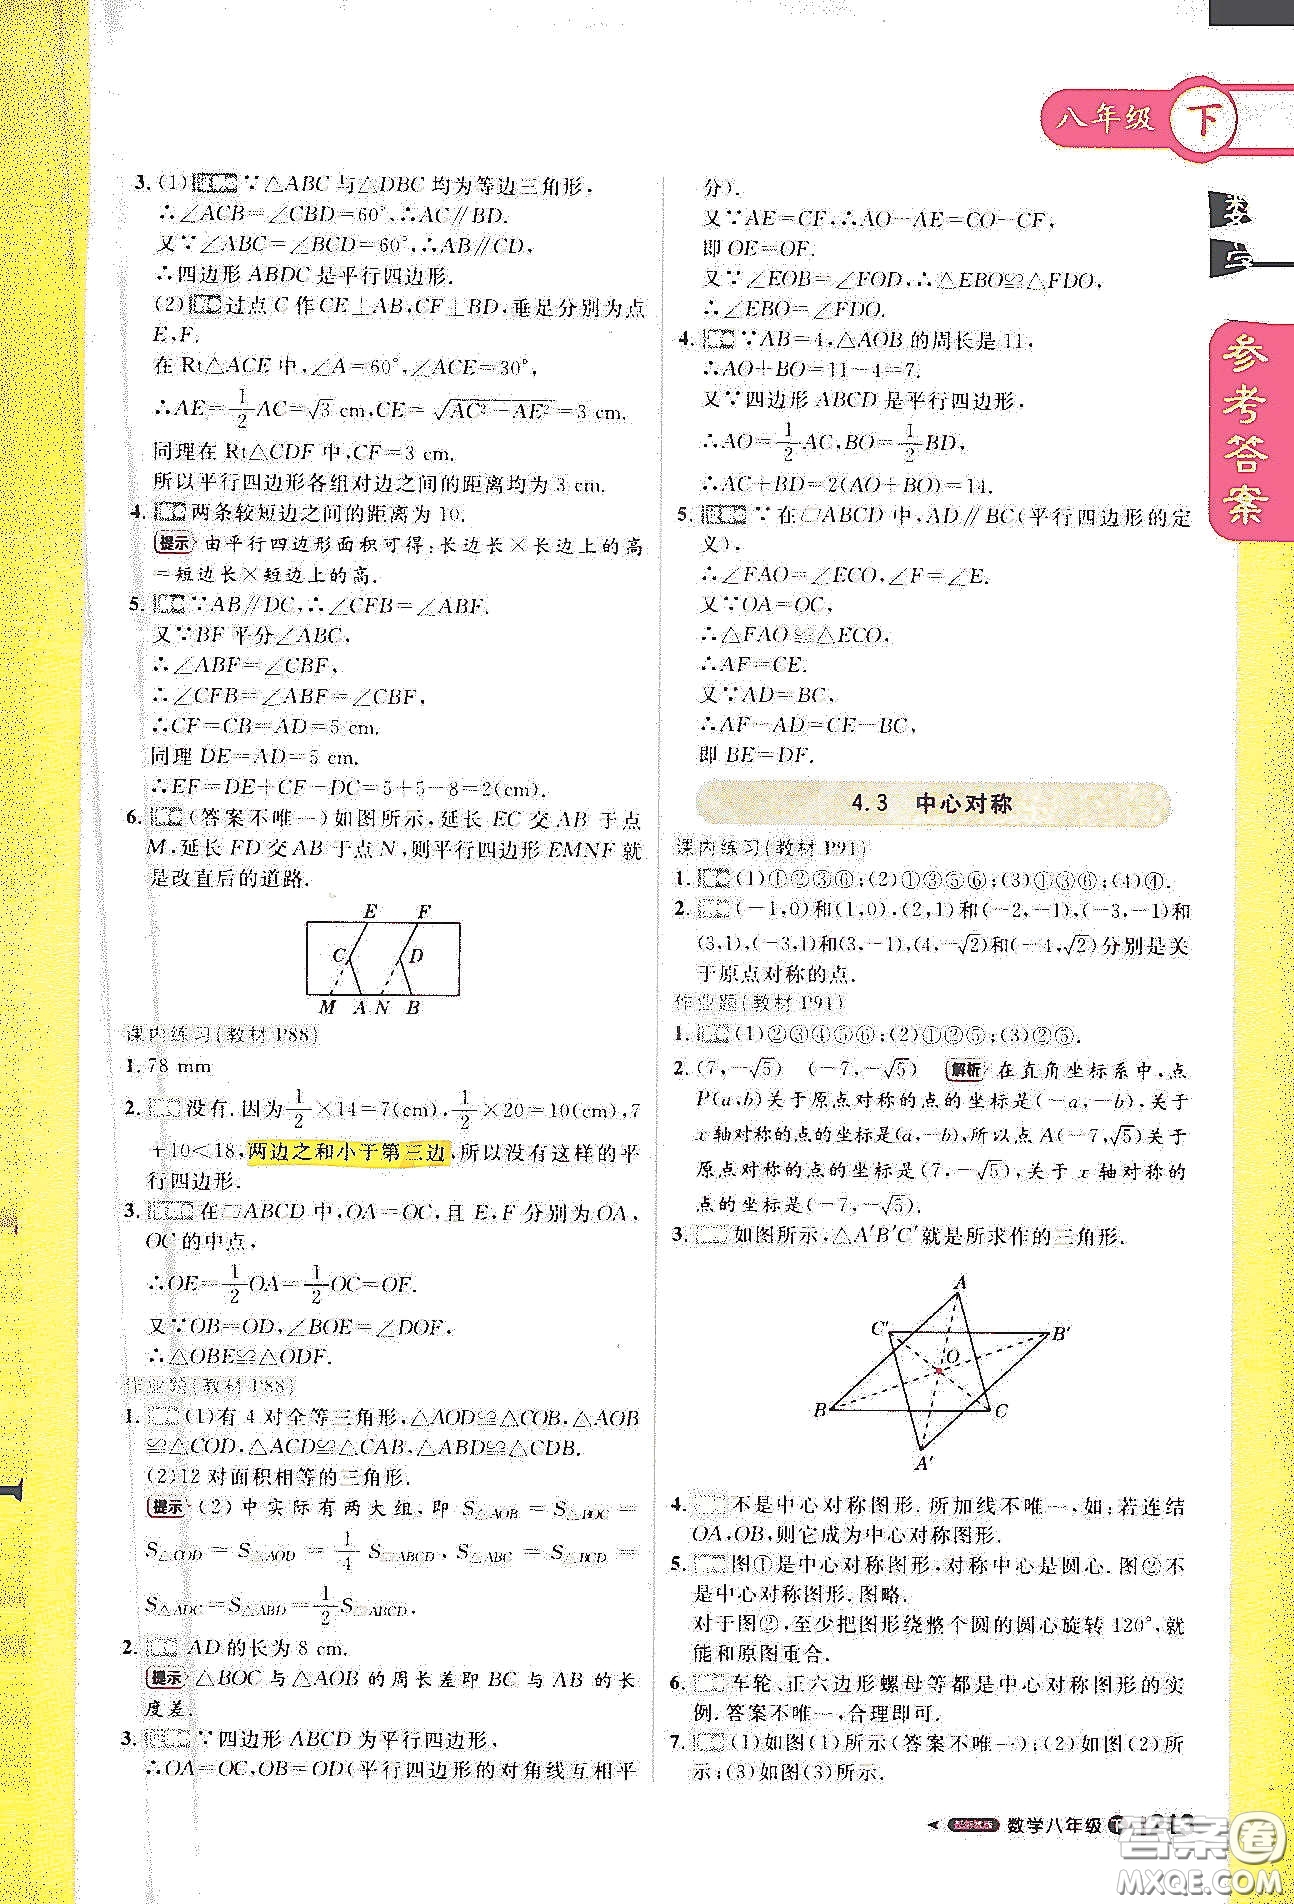 八年级 下
数学
参考答案
3. (1) ∵△ABC与△DBC均为等边三角形,
∴∠ACB=∠CBD=60°,∴AC∥BD.
又∵∠ABC=∠BCD=60°,∴AB∥CD,
∴四边形ABDC是平行四边形.
(2) 过点C作CE⊥AB,CF⊥BD,垂足分别为点
E,F.
在Rt△ACE中,∠A=60°,∠ACE=30°,
∴AE=1/2AC=√3 cm,CE=√(AC²-AE²)=3 cm.
同理在Rt△CDF中,CF=3 cm.
所以平行四边形各组对边之间的距离均为3 cm.
4. 两条较短边之间的距离为10.
提示 由平行四边形面积可得:长边长×长边上的高
=短边长×短边上的高.
5. ∵AB∥DC,∴∠CFB=∠ABF.
又∵BF平分∠ABC,
∴∠ABF=∠CBF,
∴∠CFB=∠ABF=∠CBF,
∴CF=CB=AD=5 cm.
同理DE=AD=5 cm.
∴EF=DE+CF-DC=5+5-8=2(cm)
6. (答案不唯一)如图所示,延长EC交AB于点
M,延长FD交AB于点N,则平行四边形EMNF就
是改直后的道路.
E F
C D
M A N B
课内练习(教材P88)
1. 78 mm
2. 没有.因为1/2×14=7(cm),1/2×20=10(cm),7
+10<18,两边之和小于第三边,所以没有这样的平
行四边形.
3. 在▱ABCD中,OA=OC,且E,F分别为OA,
OC的中点,
∴OE=1/2OA=1/2OC=OF.
又∵OB=OD,∠BOE=∠DOF,
∴△OBE≌△ODF.
作业题(教材P88)
1. (1)有4对全等三角形,△AOD≌△COB,△AOB
≌△COD,△ACD≌△CAB,△ABD≌△CDB.
(2)12对面积相等的三角形.
提示 (2)中实际有两大组,即S△AOB=S△BOC=
S△COD=S△AOD=1/4 S▱ABCD,S△ABC=S△BCD=
S△ADC=S△ABD=1/2S▱ABCD.
2. AD的长为8 cm.
提示 △BOC与△AOB的周长差即BC与AB的长
度差.
3. ∵四边形ABCD为平行四边形,
∴OA=OC,OB=OD(平行四边形的对角线互相平
分).
又∵AE=CF,∴AO-AE=CO-CF,
即OE=OF.
又∵∠EOB=∠FOD,∴△EBO≌△FDO,
∴∠EBO=∠FDO.
4. ∵AB=4,△AOB的周长是11,
∴AO+BO=11-4=7.
又∵四边形ABCD是平行四边形,
∴AO=1/2AC,BO=1/2BD,
∴AC+BD=2(AO+BO)=14.
5. ∵在▱ABCD中,AD∥BC(平行四边形的定
义),
∴∠FAO=∠ECO,∠F=∠E.
又∵OA=OC,
∴△FAO≌△ECO,
∴AF=CE.
又∵AD=BC,
∴AF-AD=CE-BC,
即BE=DF.
4.3 中心对称
课内练习(教材P91)
1. (1)①②③⑥;(2)①③⑤⑥;(3)①③⑥;(4)④.
2. (-1,0)和(1,0),(2,1)和(-2,-1),(-3,-1)和
(3,1),(-3,1)和(3,-1),(4,-√2)和(-4,√2)分别是关
于原点对称的点.
作业题(教材P91)
1. (1)②③④⑤⑥;(2)①②⑤;(3)①②⑤.
2. (7,-√5) (-7,-√5) 解析 在直角坐标系中,点
P(a,b)关于原点对称的点的坐标是(-a,-b),关于
x轴对称的点的坐标是(a,-b),所以点A(-7,√5)关于
原点对称的点的坐标是(7,-√5),关于x轴对称的
点的坐标是(-7,-√5).
3. 如图所示,△A′B′C′就是所求作的三角形.
A
C′ B′
O
B C
A′
4. 不是中心对称图形.所加线不唯一,如:若连结
OA,OB,则它成为中心对称图形.
5. 图①是中心对称图形,对称中心是圆心.图②不
是中心对称图形.图略.
对于图②,至少把图形绕整个圆的圆心旋转120°,就
能和原图重合.
6. 车轮、正六边形螺母等都是中心对称图形的实
例.答案不唯一,合理即可.
7. (1)如图(1)所示(答案不唯一);(2)如图(2)所
示;(3)如图(3)所示.
数学八年级 下 213
答案圈
MXQE.COM